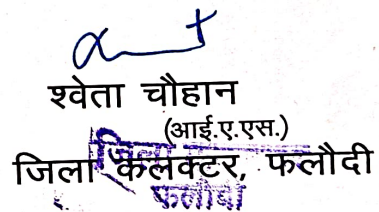 श्वेता चौहान
(आई.ए.एस.)
जिला कलक्टर, फलौदी
जिला
फलौदी